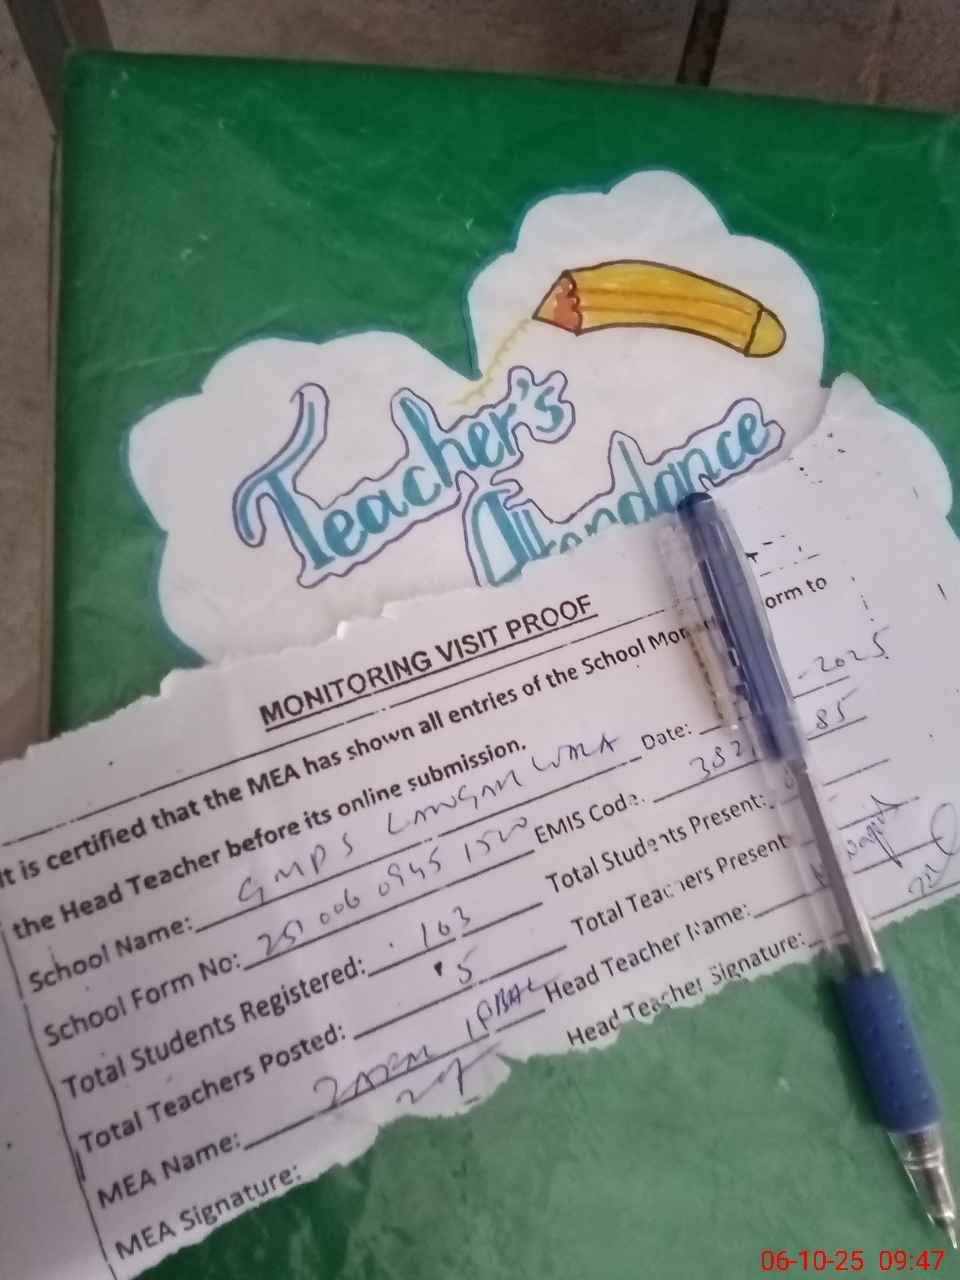 Teacher's
Attendance
MONITORING VISIT PROOF
It is certified that the MEA has shown all entries of the School orm to
the Head Teacher before its online submission.
School Name: GMPS LANGAR WALA Date: -2025
School Form No: EMIS Code. 85
Total Students Registered: 163 Total Students Present:
Total Teachers Posted: 5 Total Teachers Present:
MEA Name: IQBAL Head Teacher Name:
MEA Signature: Head Teacher Signature:
06-10-25 09:47